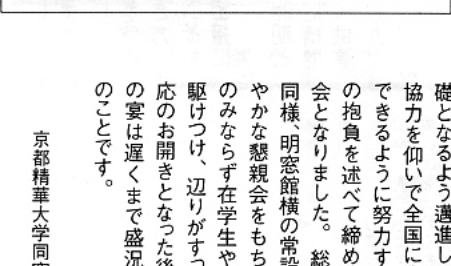 礎となるよう邁進し
協力を仰いで全国に
できるように努力す
の抱負を述べて締め
会となりました。総
同様、明窓館横の常設
やかな懇親会をもち
のみならず在学生や
駆けつけ、辺りがすっ
応のお開きとなった後
の宴は遅くまで盛況
のことです。
京都精華大学同窓